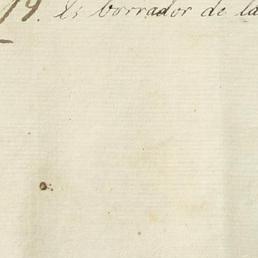 19. Es borrador de la